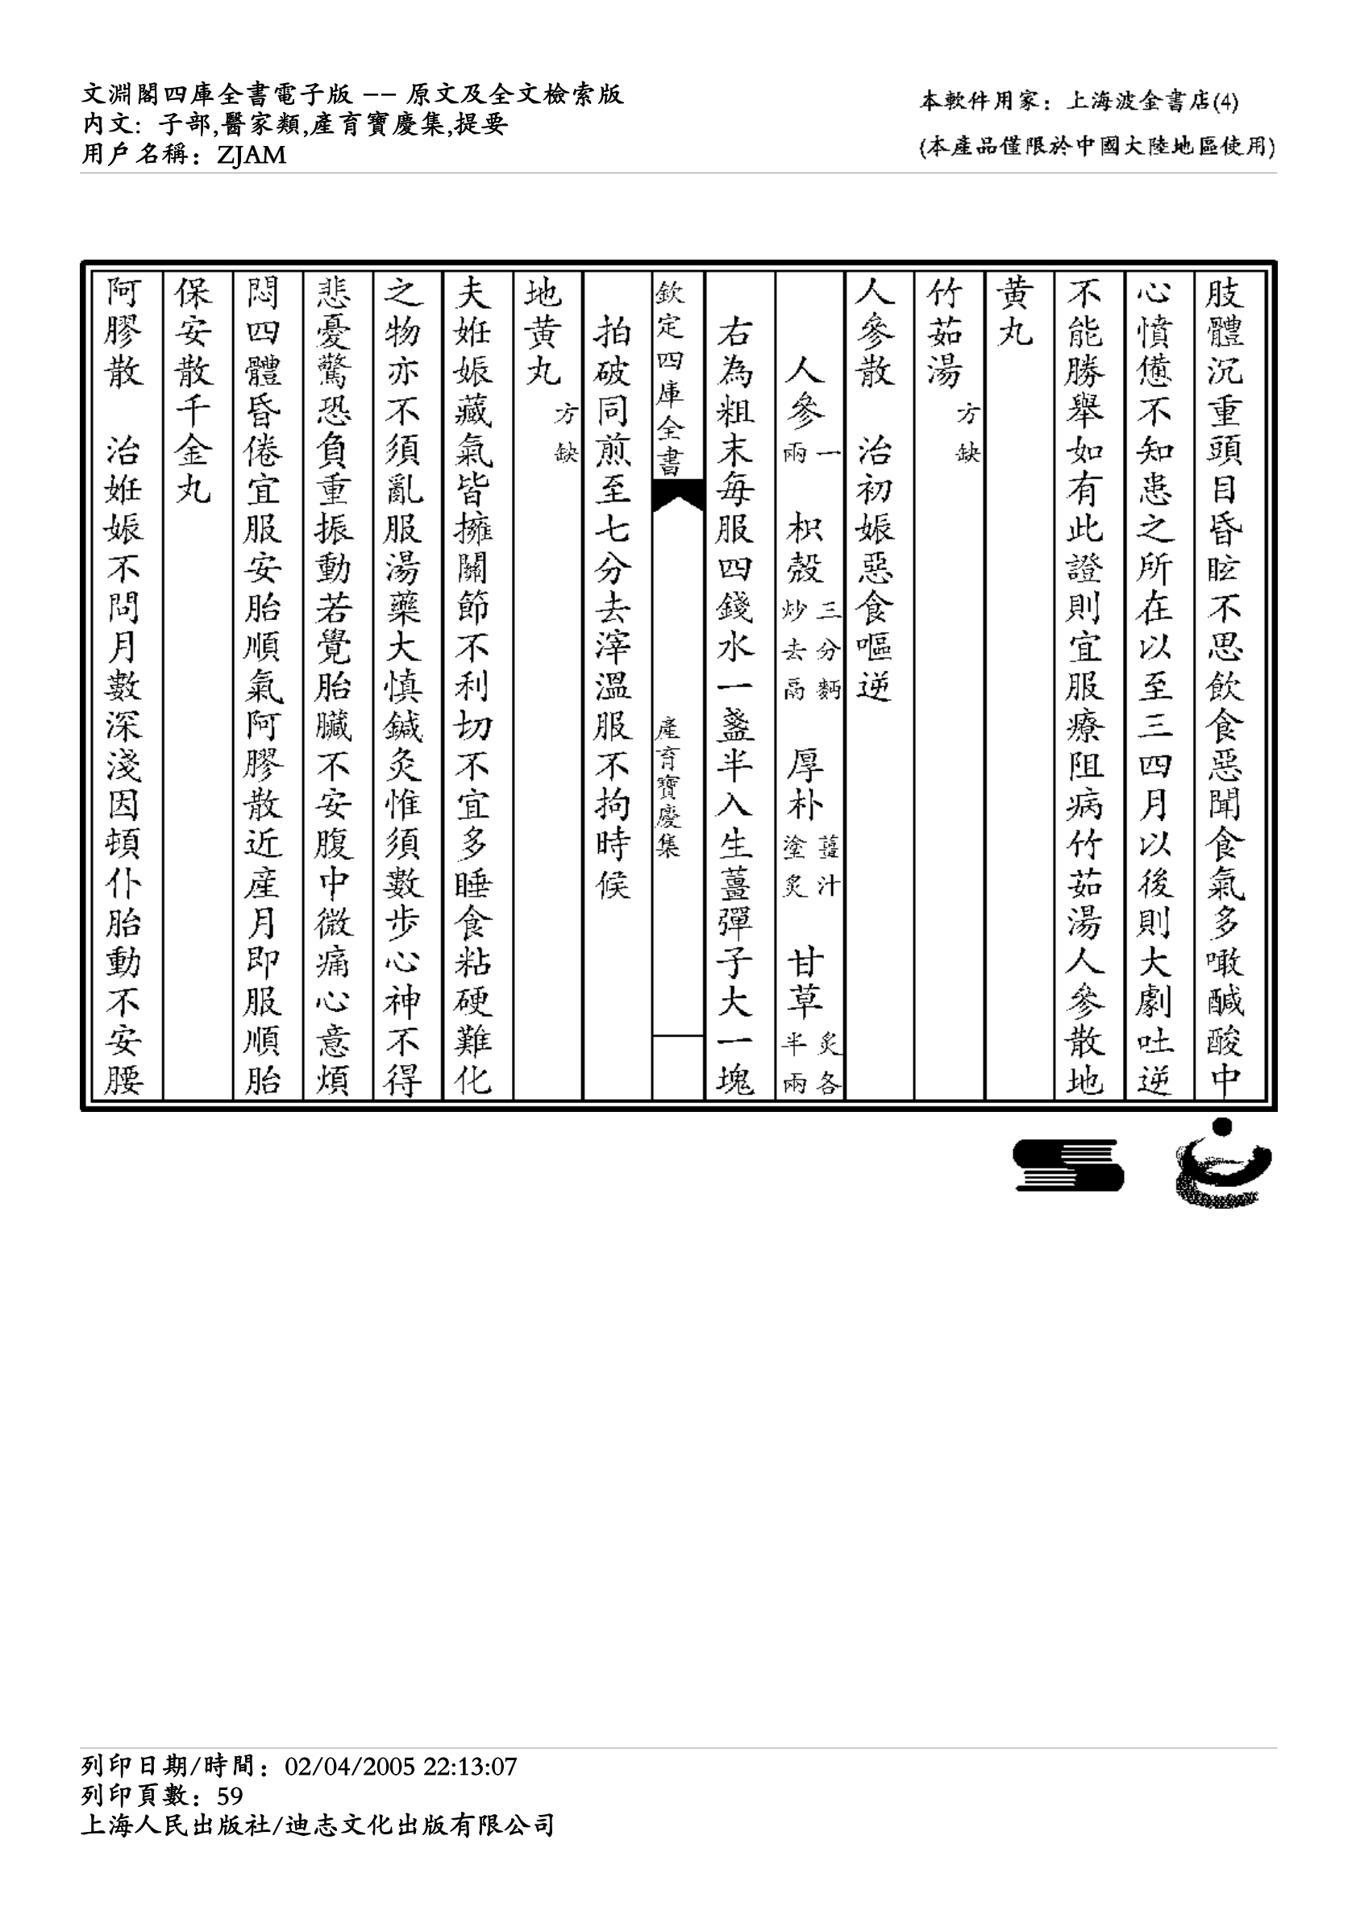 文淵閣四庫全書電子版 −− 原文及全文檢索版
内文: 子部,醫家類,產育寶慶集,提要
用戶名稱: ZJAM
本軟件用家: 上海波金書店(4)
(本產品僅限於中國大陸地區使用)
肢體沉重頭目昏眩不思飲食惡聞食氣多噉鹹酸中
心憒憊不知患之所在以至三四月以後則大劇吐逆
不能勝舉如有此證則宜服療阻病竹茹湯人參散地
黄丸
竹茹湯 方缺
人參散 治初娠惡食嘔逆
人參 一兩 枳殼 三分麪炒去鬲 厚朴 薑汁塗炙 甘草 炙各半兩
右為粗末每服四錢水一盞半入生薑彈子大一塊
欽定四庫全書 產育寶慶集
拍破同煎至七分去滓溫服不拘時候
地黄丸 方缺
夫姙娠藏氣皆擁關節不利切不宜多睡食粘硬難化
之物亦不須亂服湯藥大慎鍼灸惟須數步心神不得
悲憂驚恐負重振動若覺胎臟不安腹中微痛心意煩
悶四體昏倦宜服安胎順氣阿膠散近產月即服順胎
保安散千金丸
阿膠散 治姙娠不問月數深淺因頓仆胎動不安腰
列印日期/時間: 02/04/2005 22:13:07
列印頁數: 59
上海人民出版社/迪志文化出版有限公司